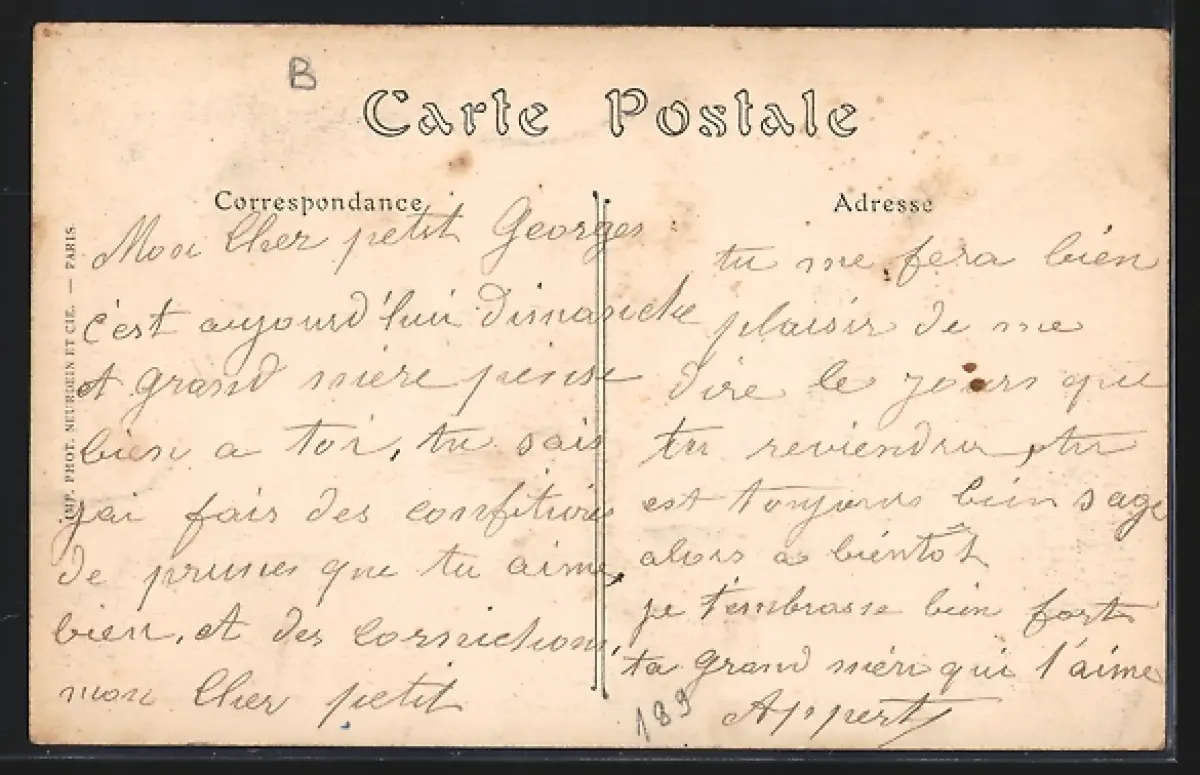 B
Carte Postale
Correspondance
Adresse
IMP. PHOT. NEURDEIN ET CIE. — PARIS.
Mon Cher petit Georges
c'est aujourd'hui Dimanche
et grand mère pense
bien a toi, tu sais
j'ai fais des confitures
de prunes que tu aime
bien, et des cornichons,
mon Cher petit
tu me fera bien
plaisir de me
dire le jours que
tu reviendra, tu
est toujours bien sage
alors a bientôt
je t'embrasse bien fort
ta grand mère qui t'aime
Appert
189